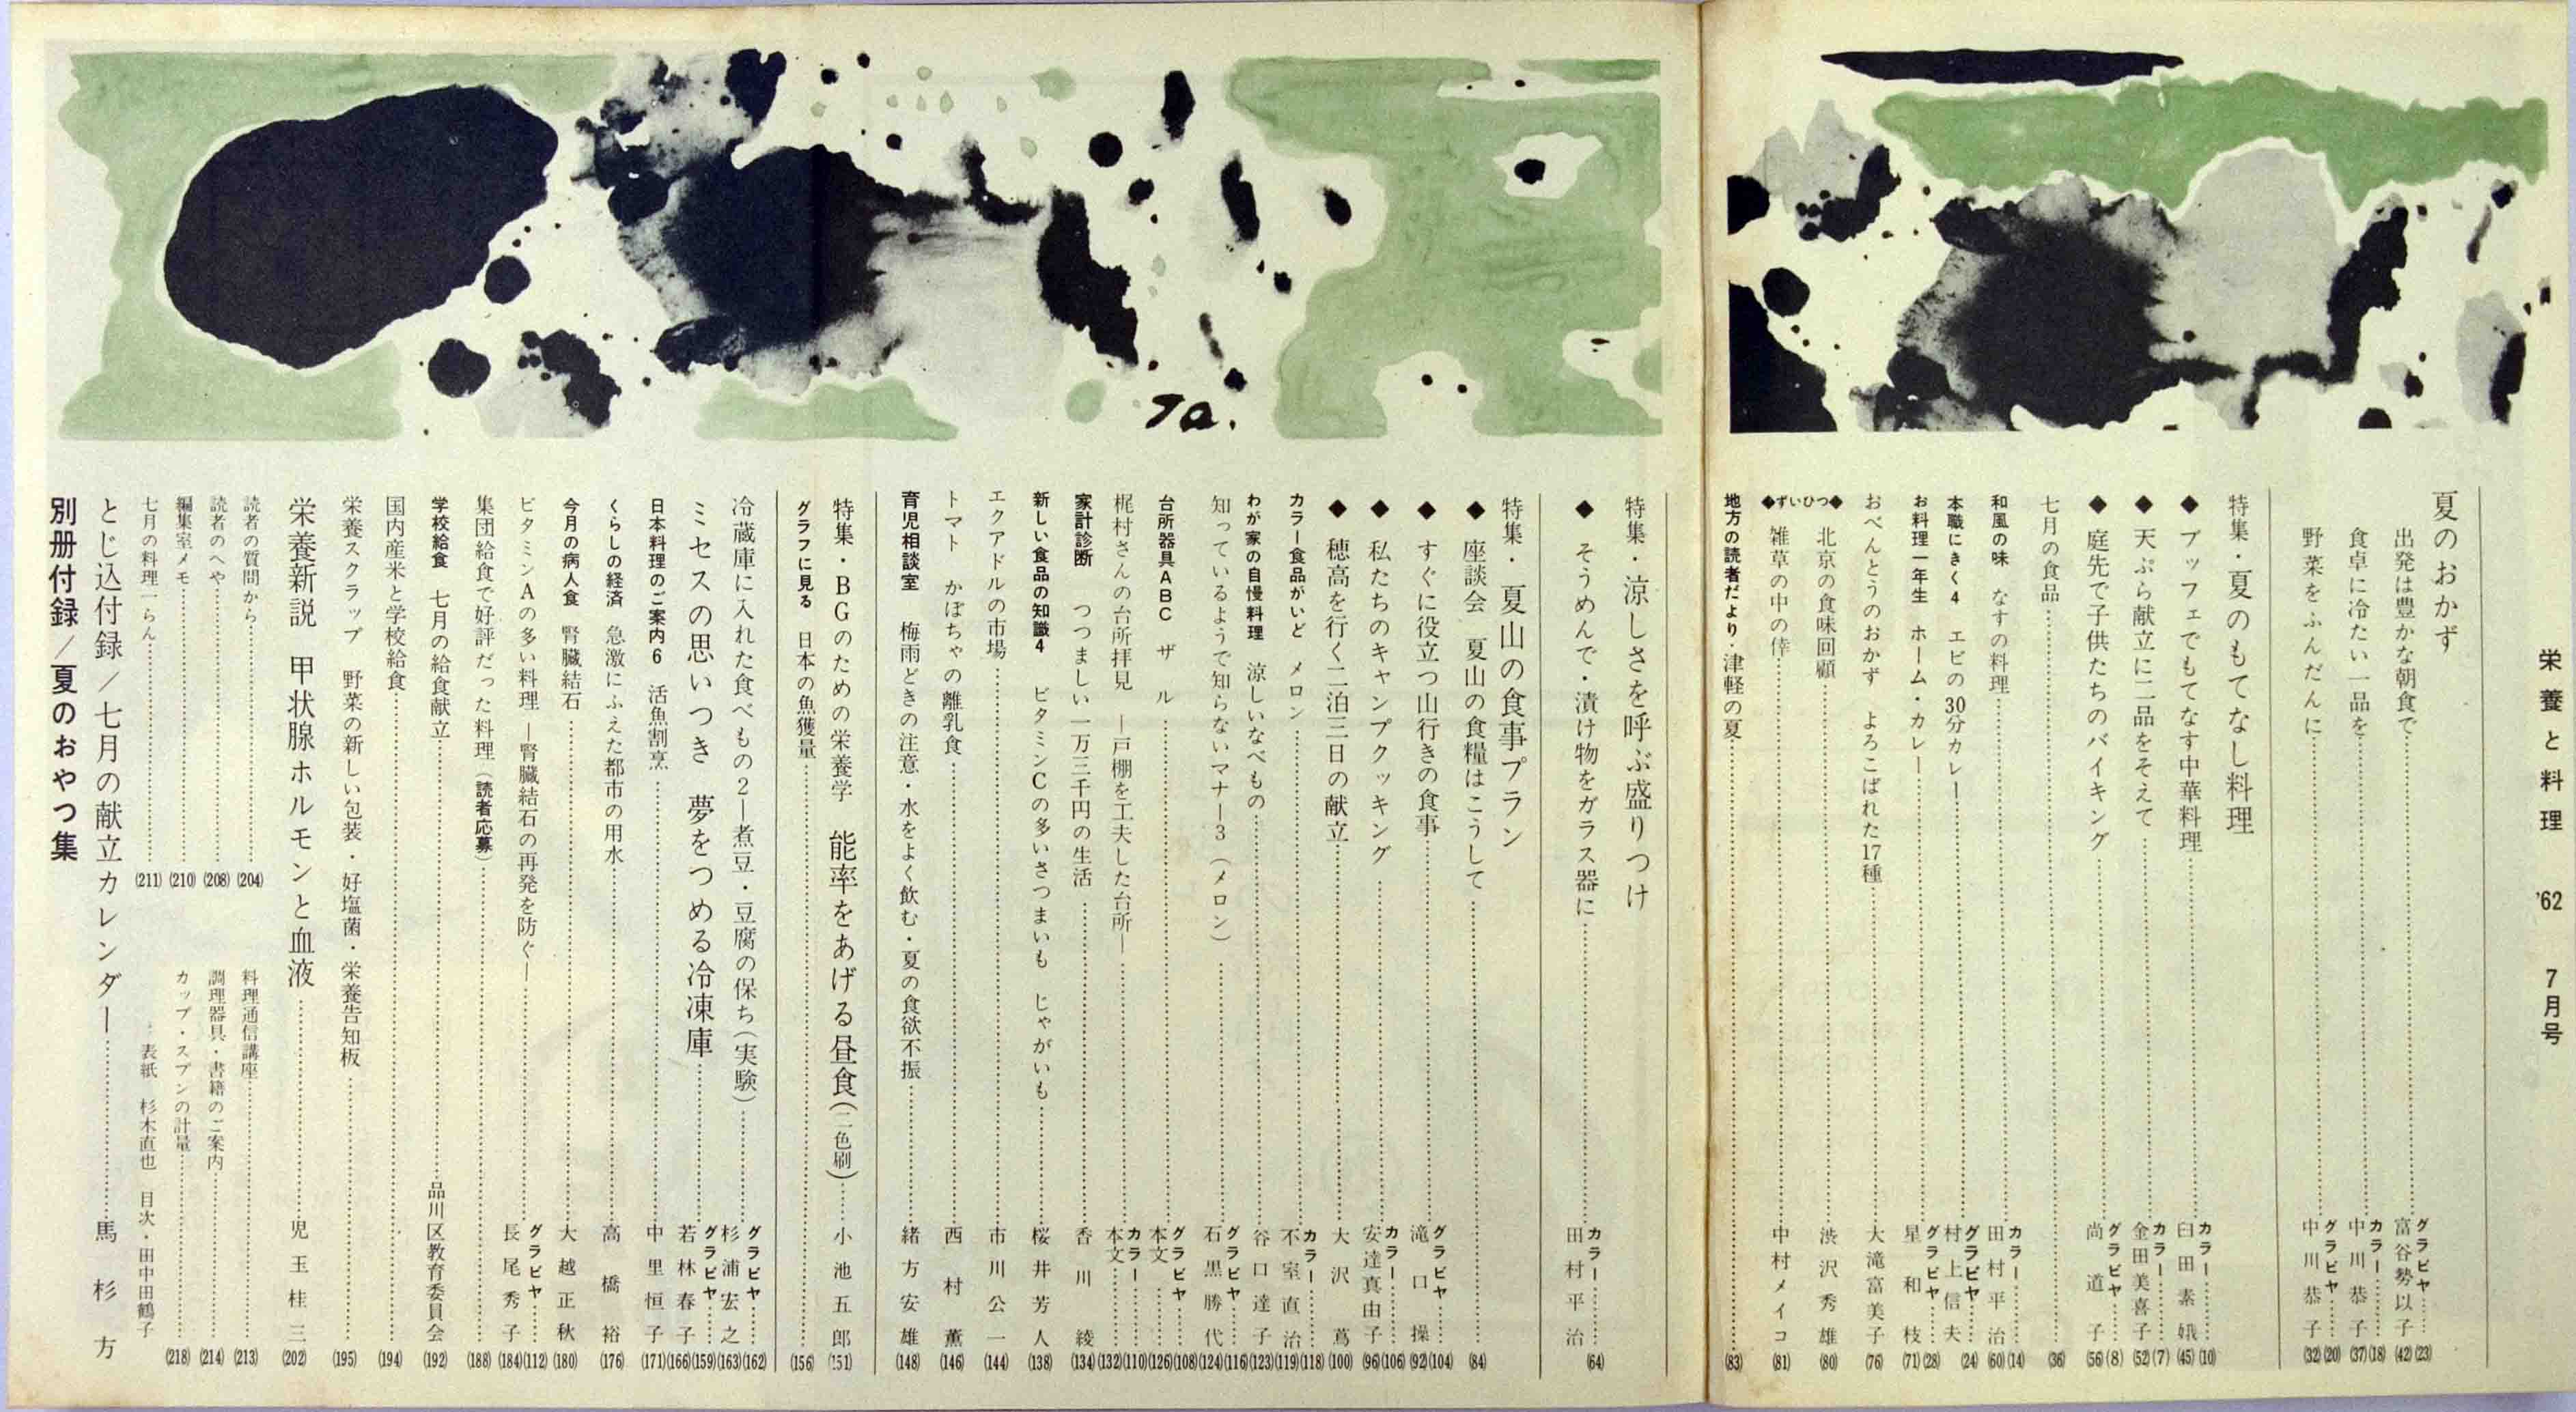 栄養と料理 '62 7月号
夏のおかず
出発は豊かな朝食で……富谷勢以子 グラビヤ……(42)(23)
食卓に冷たい一品を……中川恭子 カラー……(37)(18)
野菜をふんだんに……中川恭子 グラビヤ……(32)(20)
特集・夏のもてなし料理
◆ブッフェでもてなす中華料理……臼田素娥 カラー……(45)(10)
◆天ぷら献立に二品をそえて……金田美喜子 カラー……(52)(7)
◆庭先で子供たちのバイキング……尚道子 グラビヤ……(56)(8)
七月の食品……(36)
和風の味 なすの料理……田村平治 カラー……(60)(14)
本職にきく4 エビの30分カレー……村上信夫 グラビヤ……(24)
お料理一年生 ホーム・カレー……星和枝 グラビヤ……(71)(28)
おべんとうのおかず よろこばれた17種……大滝富美子(76)
◆ずいひつ◆
北京の食味回顧……渋沢秀雄(80)
雑草の中の倖……中村メイコ(81)
地方の読者だより・津軽の夏……(83)
特集・涼しさを呼ぶ盛りつけ
◆そうめんで・漬け物をガラス器に……田村平治 カラー……(64)
特集・夏山の食事プラン
◆座談会 夏山の食糧はこうして……(84)
◆すぐに役立つ山行きの食事……滝口操 グラビヤ……(92)(104)
◆私たちのキャンプクッキング……安達真由子 カラー……(96)(106)
◆穂高を行く二泊三日の献立……大沢蔦(100)
カラー食品がいど メロン……不室直治 カラー……(119)(118)
わが家の自慢料理 涼しいなべもの……谷口達子(123)
知っているようで知らないマナー3(メロン)……石黒勝代 グラビヤ……(124)(116)
台所器具ABC ザル……本文……グラビヤ……(126)(108)
梶村さんの台所拝見 ―戸棚を工夫した台所―……本文……カラー……(132)(110)
家計診断 つつましい一万三千円の生活……香川綾(134)
新しい食品の知識4 ビタミンCの多いさつまいも じゃがいも……桜井芳人(138)
エクアドルの市場……市川公一(144)
トマト かぼちゃの離乳食……西村薫(146)
育児相談室 梅雨どきの注意・水をよく飲む・夏の食欲不振……緒方安雄(148)
特集・BGのための栄養学 能率をあげる昼食(二色刷)……小池五郎(151)
グラフに見る 日本の魚獲量……(156)
冷蔵庫に入れた食べもの2―煮豆・豆腐の保ち(実験)……杉浦宏之 グラビヤ……(163)(162)
ミセスの思いつき 夢をつめる冷凍庫……若林春子 グラビヤ……(166)(159)
日本料理のご案内6 活魚割烹……中里恒子(171)
くらしの経済 急激にふえた都市の用水……高橋裕(176)
今月の病人食 腎臓結石……大越正秋(180)
ビタミンAの多い料理 ―腎臓結石の再発を防ぐ―……長尾秀子 グラビヤ……(184)(112)
集団給食で好評だった料理(読者応募)……(188)
学校給食 七月の給食献立……品川区教育委員会(192)
国内産米と学校給食……(194)
栄養スクラップ 野菜の新しい包装・好塩菌・栄養告知板……(195)
栄養新説 甲状腺ホルモンと血液……児玉桂三(202)
読者の質問から……(204)
読者のへや……(208)
編集室メモ……(210)
七月の料理一らん……(211)
料理通信講座……(213)
調理器具・書籍のご案内……(214)
カップ・スプンの計量……(218)
表紙 杉木直也 目次・田中田鶴子
とじ込付録/七月の献立カレンダー……馬杉方
別册付録/夏のおやつ集
Ta.